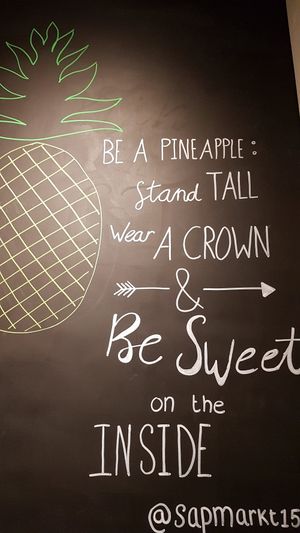 BE A PINEAPPLE:
Stand TALL
Wear A CROWN
&
Be Sweet
on the
INSIDE
@sapmarkt15